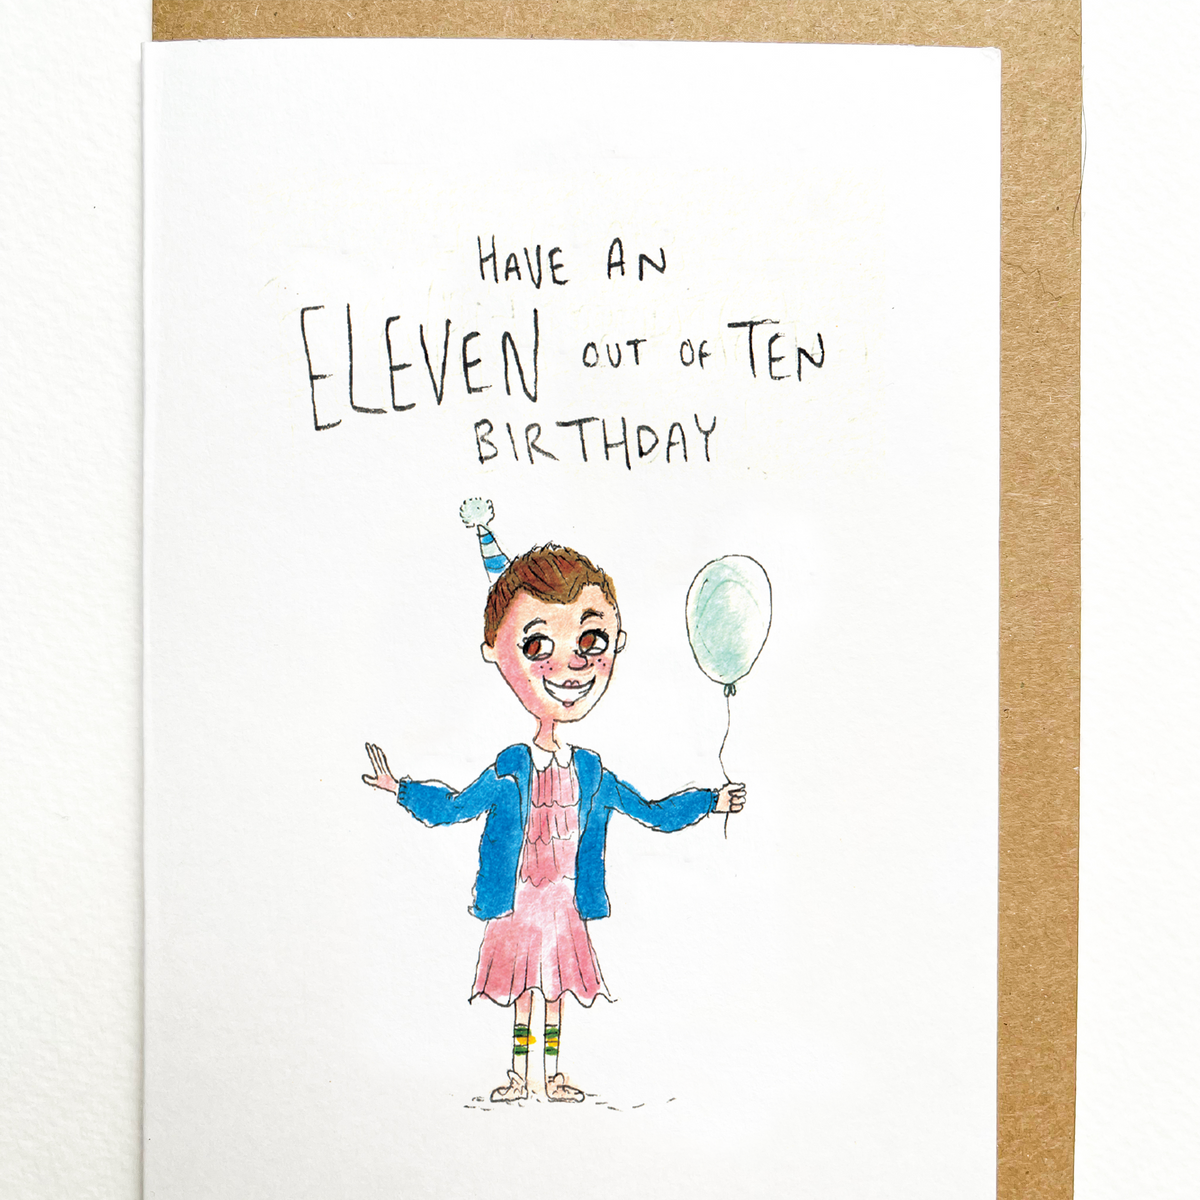 HAVE AN
ELEVEN OUT OF TEN
BIRTHDAY